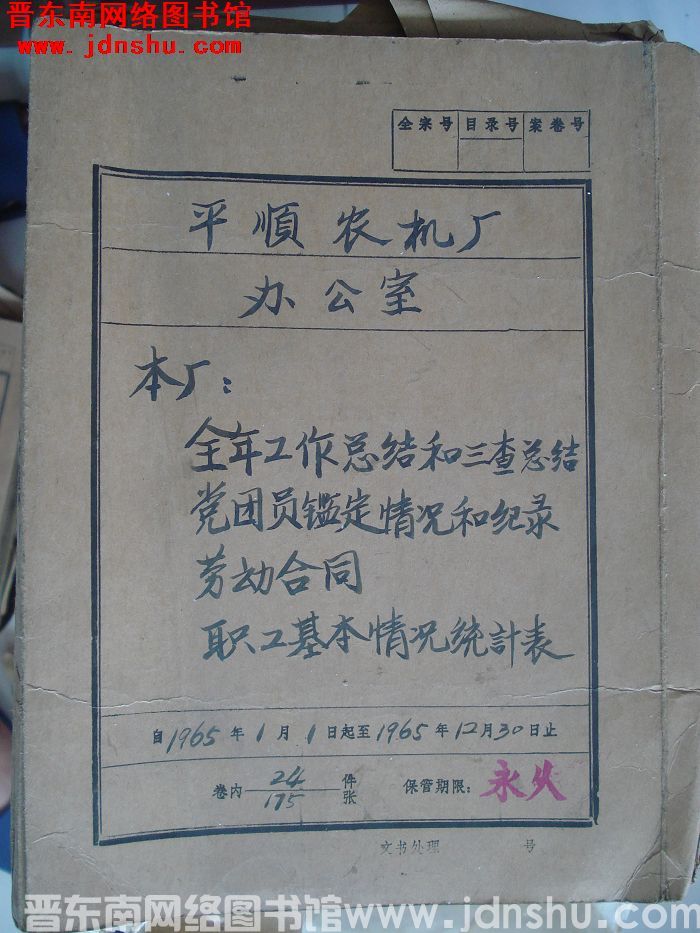 晋东南网络图书馆
www.jdnshu.com
全宗号 目录号 案卷号
平順农机厂
办公室
本厂：
全年工作总结和三查总结
党团员鑑定情况和纪录
劳动合同
职工基本情况统計表
自1965年1月1日起至1965年12月30日止
卷内 24/175 件/张 保管期限：永久
文书处理 号
晋东南网络图书馆 www.jdnshu.com